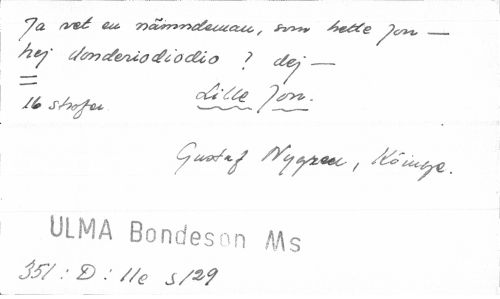 Ja vet en nämndeman, som hette Jon —
hej donderiodiodio ? dej —
=
16 strofer
Lille Jon.
Gustaf Nygren, Köinge.
ULMA Bondeson Ms
351 : D : 11e s129